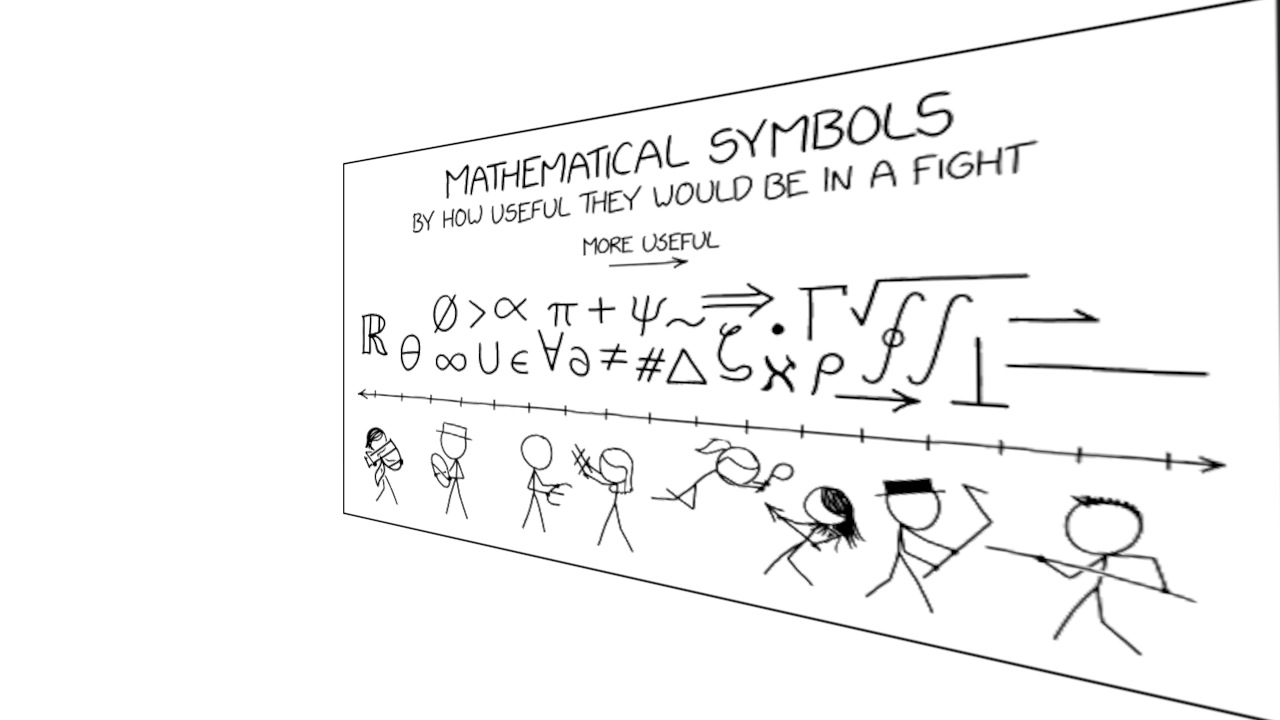 MATHEMATICAL SYMBOLS
BY HOW USEFUL THEY WOULD BE IN A FIGHT
MORE USEFUL
ℝ ∅ > ∝ π + ψ ~ ⇒ . Γ √ ∮ ∫ ⇀
θ ∞ ∪ ∈ ∀ ∂ ≠ # Δ ζ ϰ ρ → ⊥ —